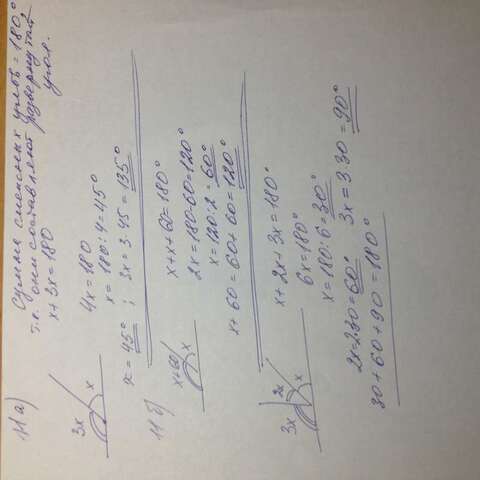 11 а)
Сумма смежных углов = 180°
т.к. они составляют развернутый
угол.
x + 3x = 180
3x x
4x = 180
x = 180 : 4 = 45°
x = 45° ; 3x = 3·45 = 135°
11 б)
x+60 x
x + x + 60 = 180°
2x = 180 - 60 = 120°
x = 120 : 2 = 60°
x + 60 = 60 + 60 = 120°
3x 2x x
x + 2x + 3x = 180°
6x = 180°
x = 180 : 6 = 30°
2x = 2·30 = 60° 3x = 3·30 = 90°
30 + 60 + 90 = 180°